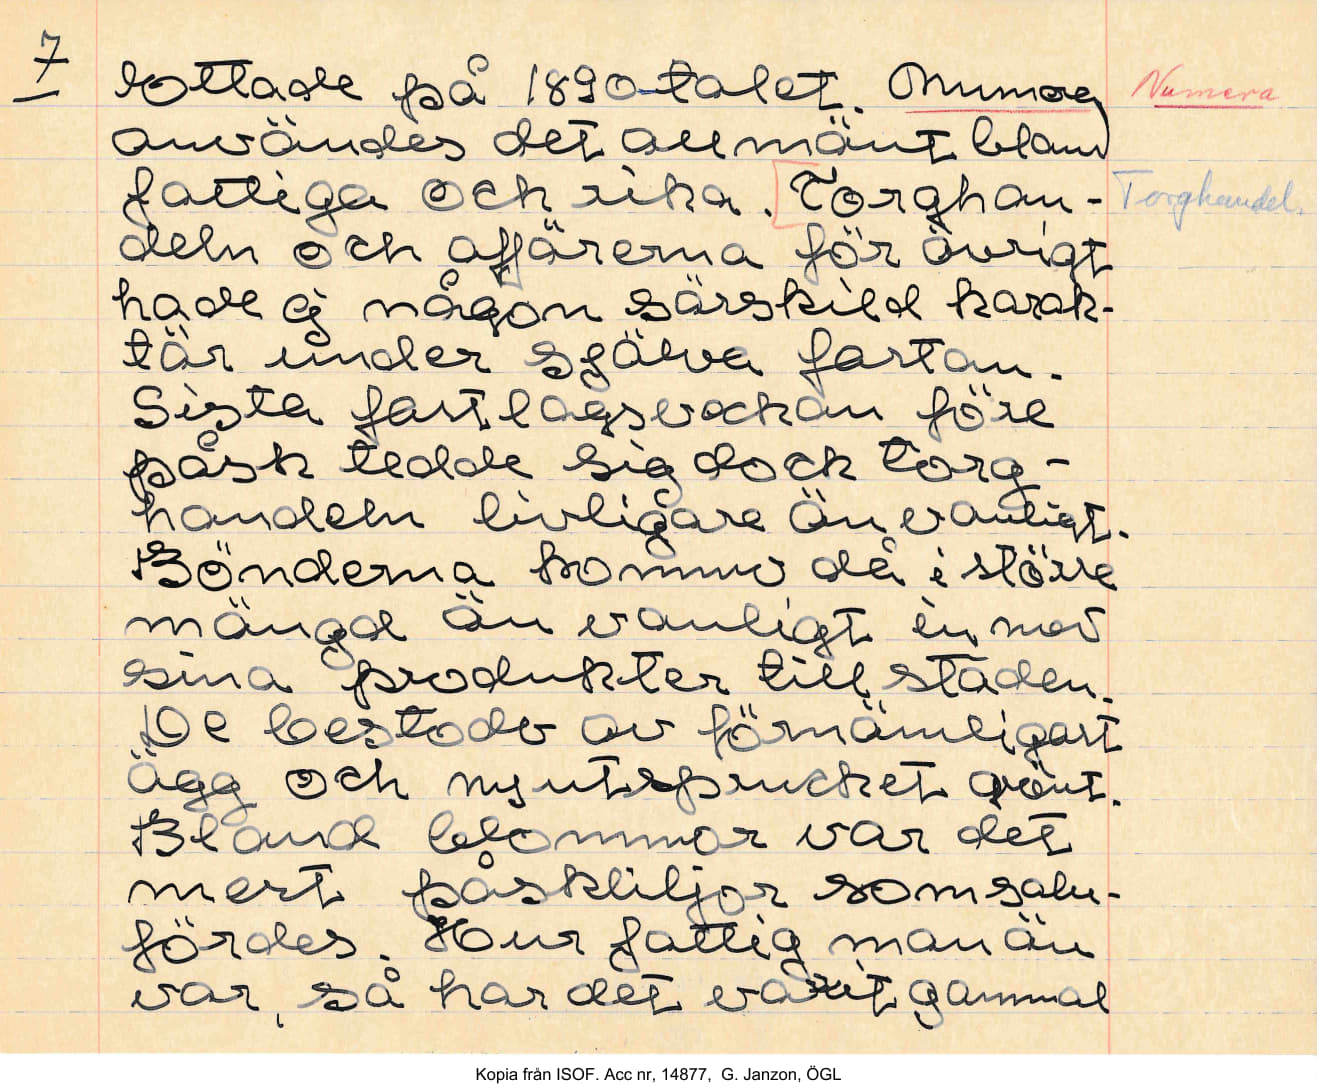 7
lottade på 1890-talet. Numera
Numera
användes det allmänt bland
fattiga och rika. Torghan-
Torghandel.
deln och affärerna för övrigt
hade ej någon särskild karak-
tär under själva fastan.
Sista fastlagsveckan före
påsk tedde sig dock torg-
handeln livligare än vanligt.
Bönderna kommo då i större
mängd än vanligt in med
sina produkter till staden.
De bestodo av förnämligast
ägg och nyutsprucket grönt.
Bland blommor var det
mest påskliljor som salu-
fördes. Hur fattig man än
var, så har det varit gammal
Kopia från ISOF. Acc nr, 14877, G. Janzon, ÖGL